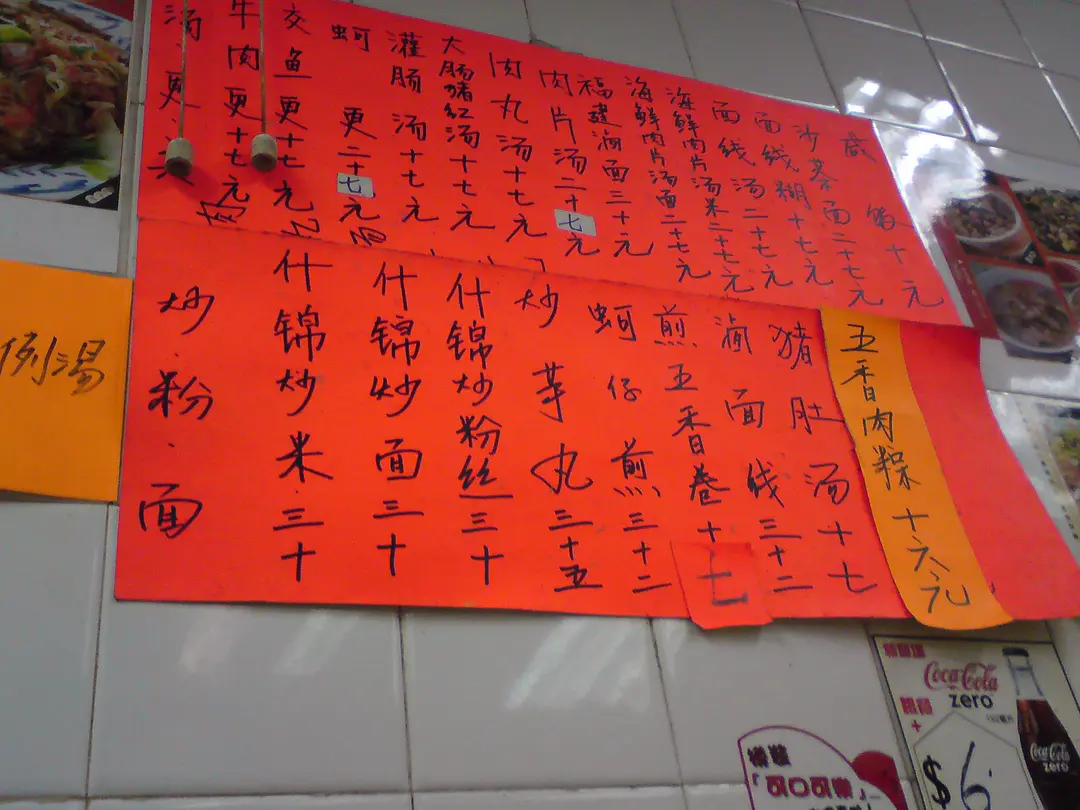 汤.更.类
牛肉更十七元
交鱼更十七元
蚵更二十七元
灌肠汤十七元
大肠猪红汤十七元
肉丸汤十七元
肉片汤二十七元
福建滷面三十元
海鲜肉片汤面二十七元
海鲜肉片汤米二十七元
面线汤二十七元
面线糊十七元
沙茶面二十七元
咸饭十元
例湯
炒.粉.面
什锦炒米三十
什锦炒面三十
什锦炒粉丝三十
炒芋丸三十五
蚵仔煎三十二
煎五香卷十七
滷面线三十二
猪肚汤十七
五香肉粽十六元
Coca-Cola
zero
$6
Coca-Cola
zero
「可口可樂」